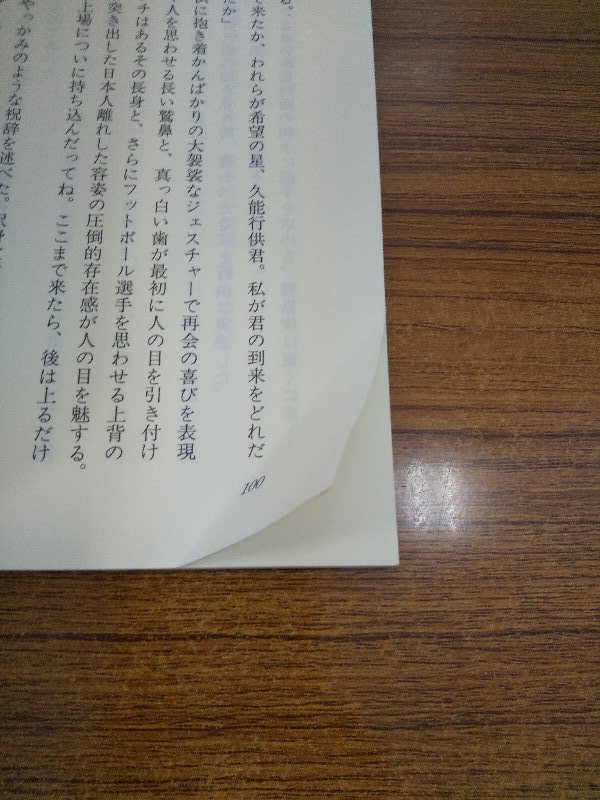 る。
で来たか、われらが希望の星、久能行供君。私が君の到来をどれだ
だか」
供に抱き着かんばかりの大袈裟なジェスチャーで再会の喜びを表現
人を思わせる長い鷲鼻と、真っ白い歯が最初に人の目を引き付け
チはあるその長身と、さらにフットボール選手を思わせる上背の
突き出した日本人離れした容姿の圧倒的存在感が人の目を魅する。
上場についに持ち込んだってね。ここまで来たら、後は上るだけ
やっかみのような祝辞を述べた。
100